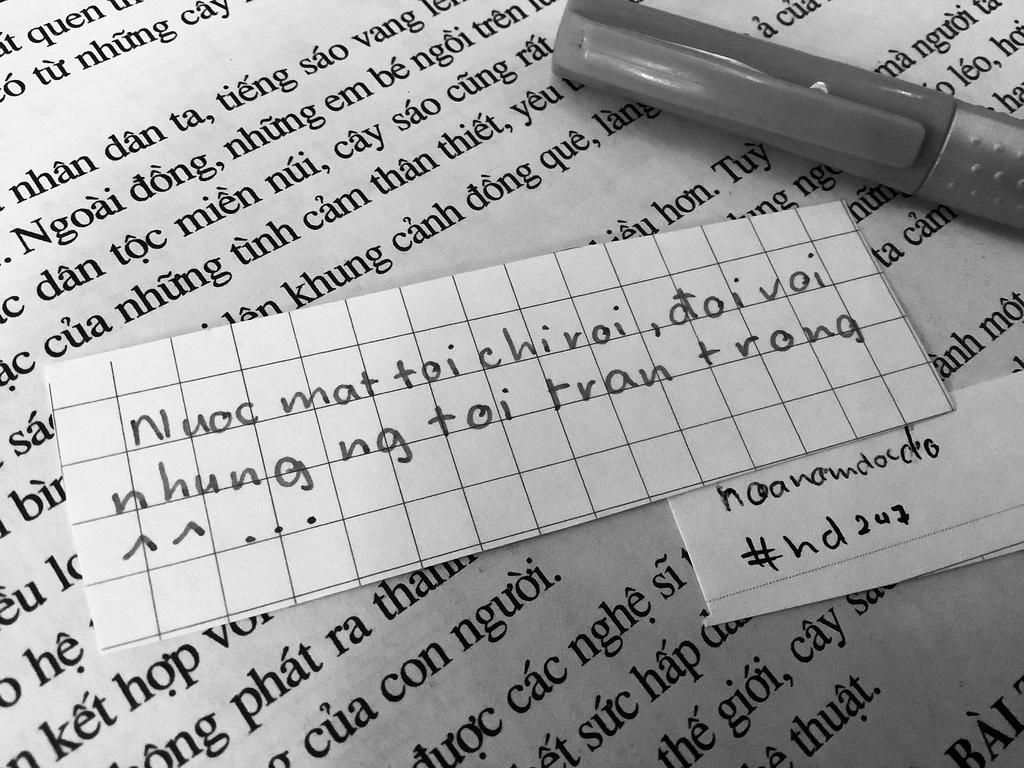 ất quen th
có từ những cây
nhân dân ta, tiếng sáo vang lên
.. Ngoài đồng, những em bé ngồi trên lư
ác dân tộc miền núi, cây sáo cũng rất
ặc của những tình cảm thân thiết, yêu
lên khung cảnh đồng quê, làng
ả của
mà người ta
o léo, hơi
iều hơn. Tuỳ
ta cảm
ành một
Nuoc mat toi chi roi , đoi voi
nhung ng toi tran trong
^ ^ . . .
hoanamdocdio
#hd247
sác
bìn
ều lo
o hệ
n kết hợp với
hông phát ra thanh
g của con người.
được các nghệ sĩ
hết sức hấp dẫ
thế giới, cây sá
hệ thuật.
BÀI T